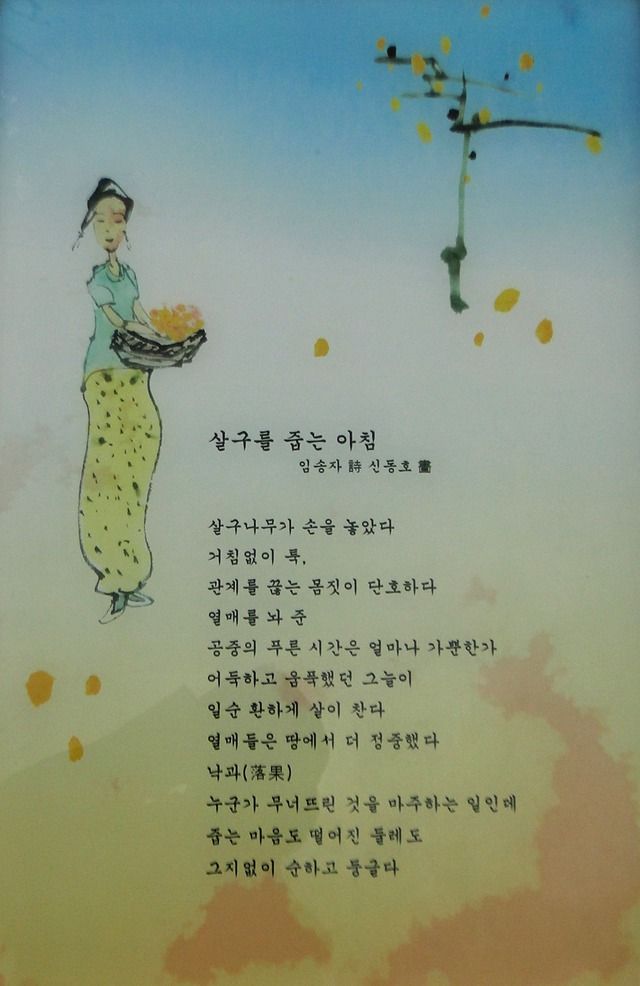 살구를 줍는 아침
임송자 詩 신동호 畵
살구나무가 손을 놓았다
거침없이 툭,
관계를 끊는 몸짓이 단호하다
열매를 놔 준
공중의 푸른 시간은 얼마나 가뿐한가
어둑하고 움푹했던 그늘이
일순 환하게 살이 찬다
열매들은 땅에서 더 정중했다
낙과(落果)
누군가 무너뜨린 것을 마주하는 일인데
줍는 마음도 떨어진 둘레도
그지없이 순하고 둥글다